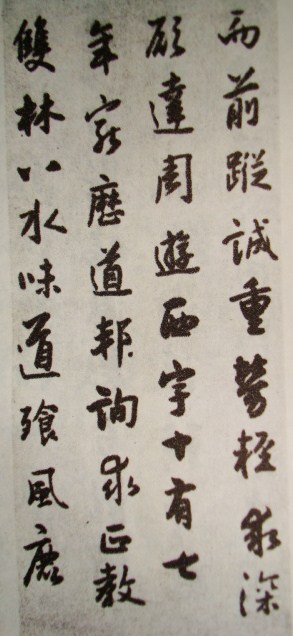 而前蹤誠重勞輕求深
願達周遊西宇十有七
年窮歷道邦詢求正教
雙林八水味道飡風鹿